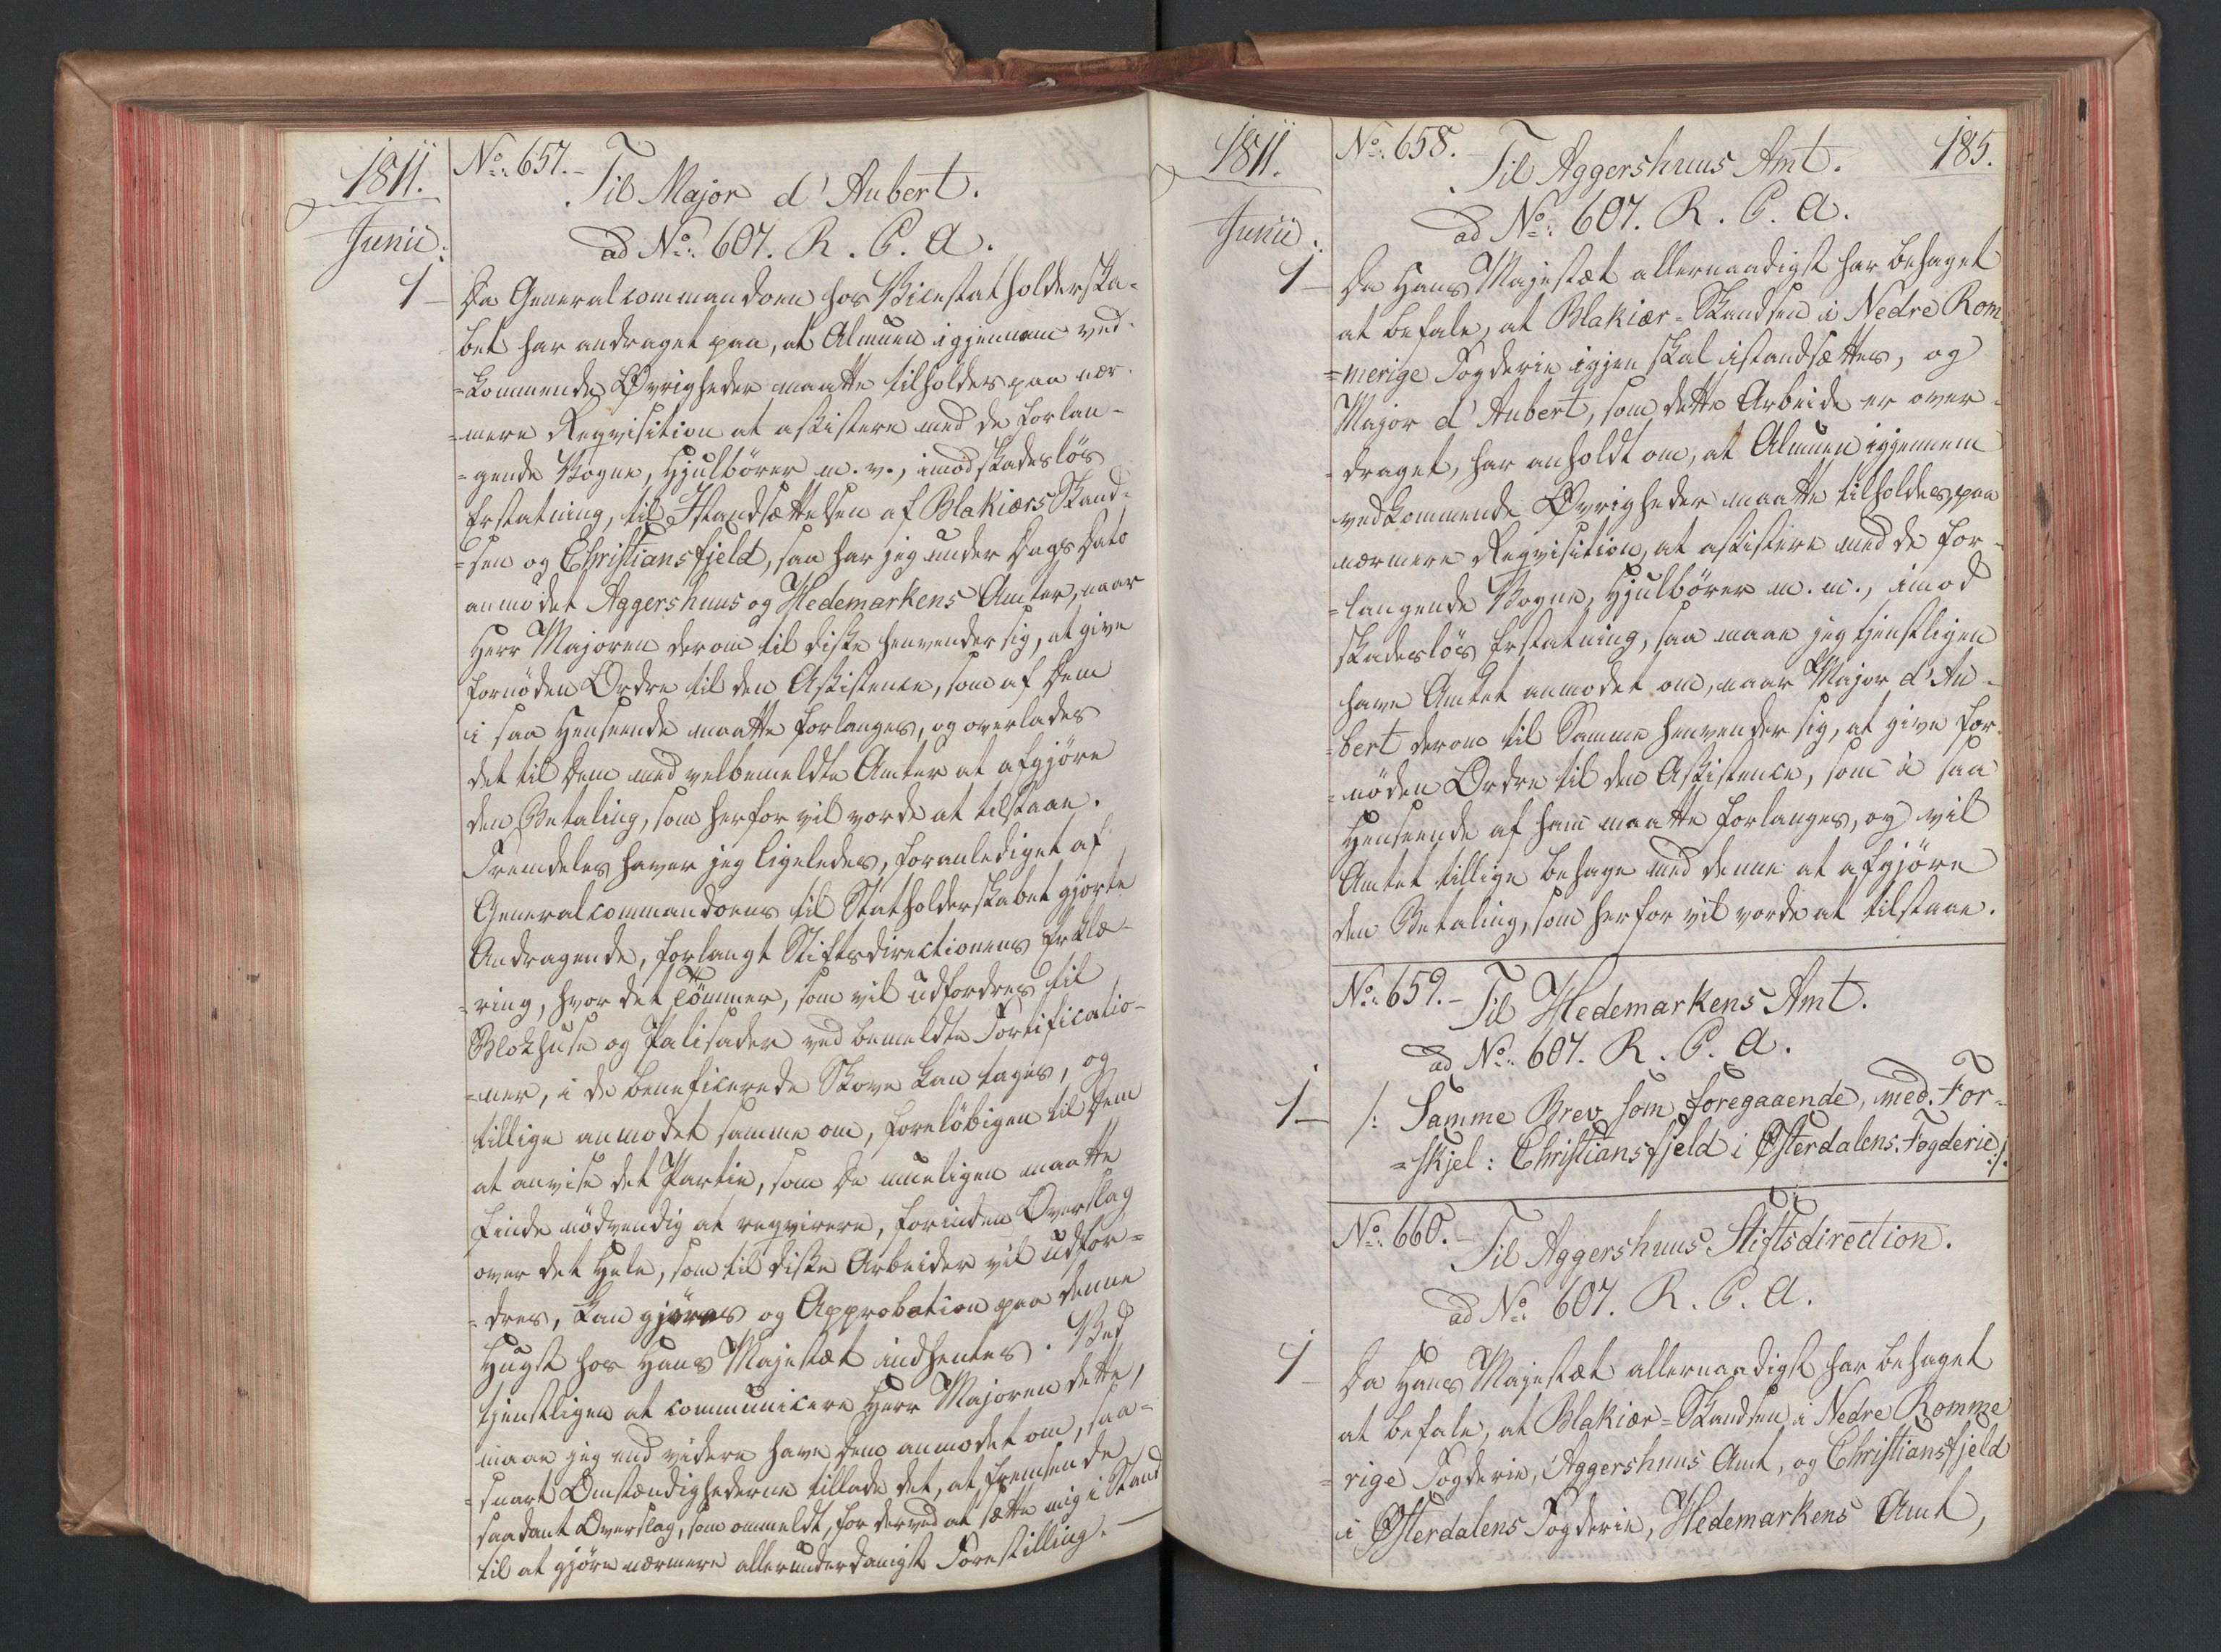 1811.
Junii:
1
No: 657.
Til Major d'Aubert.
ad No: 607. R. C. A.
Da Generalcommandoen hos Vicestatholderska-
bet har andraget paa, at Almuen igjennem ved-
=kommende Øvrigheder maatte tilholdes paa nær-
=mere Reqvisition at assistere med de forlan-
=gende Vogne, Hjulbörer m. v., imod skadeslös
Erstatning, til Istandsættelsen af Blakiærs Skand-
=sen og Christiansfjeld, saa har jeg under Dags Dato
anmodet Aggershuus og Hedemarkens Amter, naar
Herr Majoren derom til diske henvender sig, at give
fornöden Ordre til den Assistence, som af Dem
i saa Henseende maatte forlanges, og overlades
det til Dem med velbemeldte Amter at afgjöre
den Betaling, som herfor vil vorde at tilstaae.
Fremdeles haver jeg ligeledes, foranlediget af
Generalcommandoens til Statholderskabet gjorte
Andragende, forlangt Stiftsdirectionens Erklæ-
=ring, hvor det Tömmer, som vil udfordres til
Blokhuse og Palisader ved bemeldte Fortificatio-
=ner, i de beneficerede Skove kan tages, og
tillige anmodet samme om, foreløbigen til Dem
at anvise det Partie, som De mueligen maatte
finde nödvendig at reqvirere, forinden Overslag
over det Hele, som til diske Arbeider vil udfor-
=dres, kan gjöres og Approbation paa denne
Hugst hos Hans Majestæt indhentes. Ved
tjenstligen at communicere Herr Majoren dette,
maae jeg end videre have Dem anmodet om, saa-
=snart Omstændighederne tillade det, at fremsende
saadant Overslag, som ommeldt, for derved at sætte mig i Stand
til at gjöre nærmere allerunderdanigst Forestilling.
1811.
Junii:
1
No: 658.
185.
Til Aggershuus Amt.
ad No: 607. R. C. A.
Da Hans Majestæt allernaadigst har behaget
at befale, at Blakiær=Skandsen i Nedre Rom
=merige Fogderie igjen skal istandsættes, og
Major d'Aubert, som dette Arbeide er over-
=draget, har anholdt om, at Almuen igjennem
vedkommende Øvrigheder maatte tilholdes, paa
nærmere Reqvisition, at assistere med de for-
=langende Vogne, Hjulbörer m. m., imod
skadeslös Erstatning, saa maae jeg tjenstligen
have Amtet anmodet om, naar Major d'Au-
=bert derom til Samme henvender sig, at give for-
=nöden Ordre til den Assistence, som i saa
Henseende af ham maatte forlanges, og vil
Amtet tillige behage med denne at afgjöre
den Betaling, som herfor vil vorde at tilstaae.
No: 659.
Til Hedemarkens Amt.
ad No: 607. R. C. A.
1
/: Samme Brev som foregaaende, med For-
=skjel: Christiansfjeld i Østerdalens Fogderie :/.
No: 660.
Til Aggershuus Stiftsdirection.
ad No: 607. R. C. A.
1
Da Hans Majestæt allernaadigst har behaget
at befale, at Blakiær=Skandsen i Nedre Romme
=rige Fogderie, Aggershuus Amt, og Christiansfjeld
i Østerdalens Fogderie, Hedemarkens Amt,